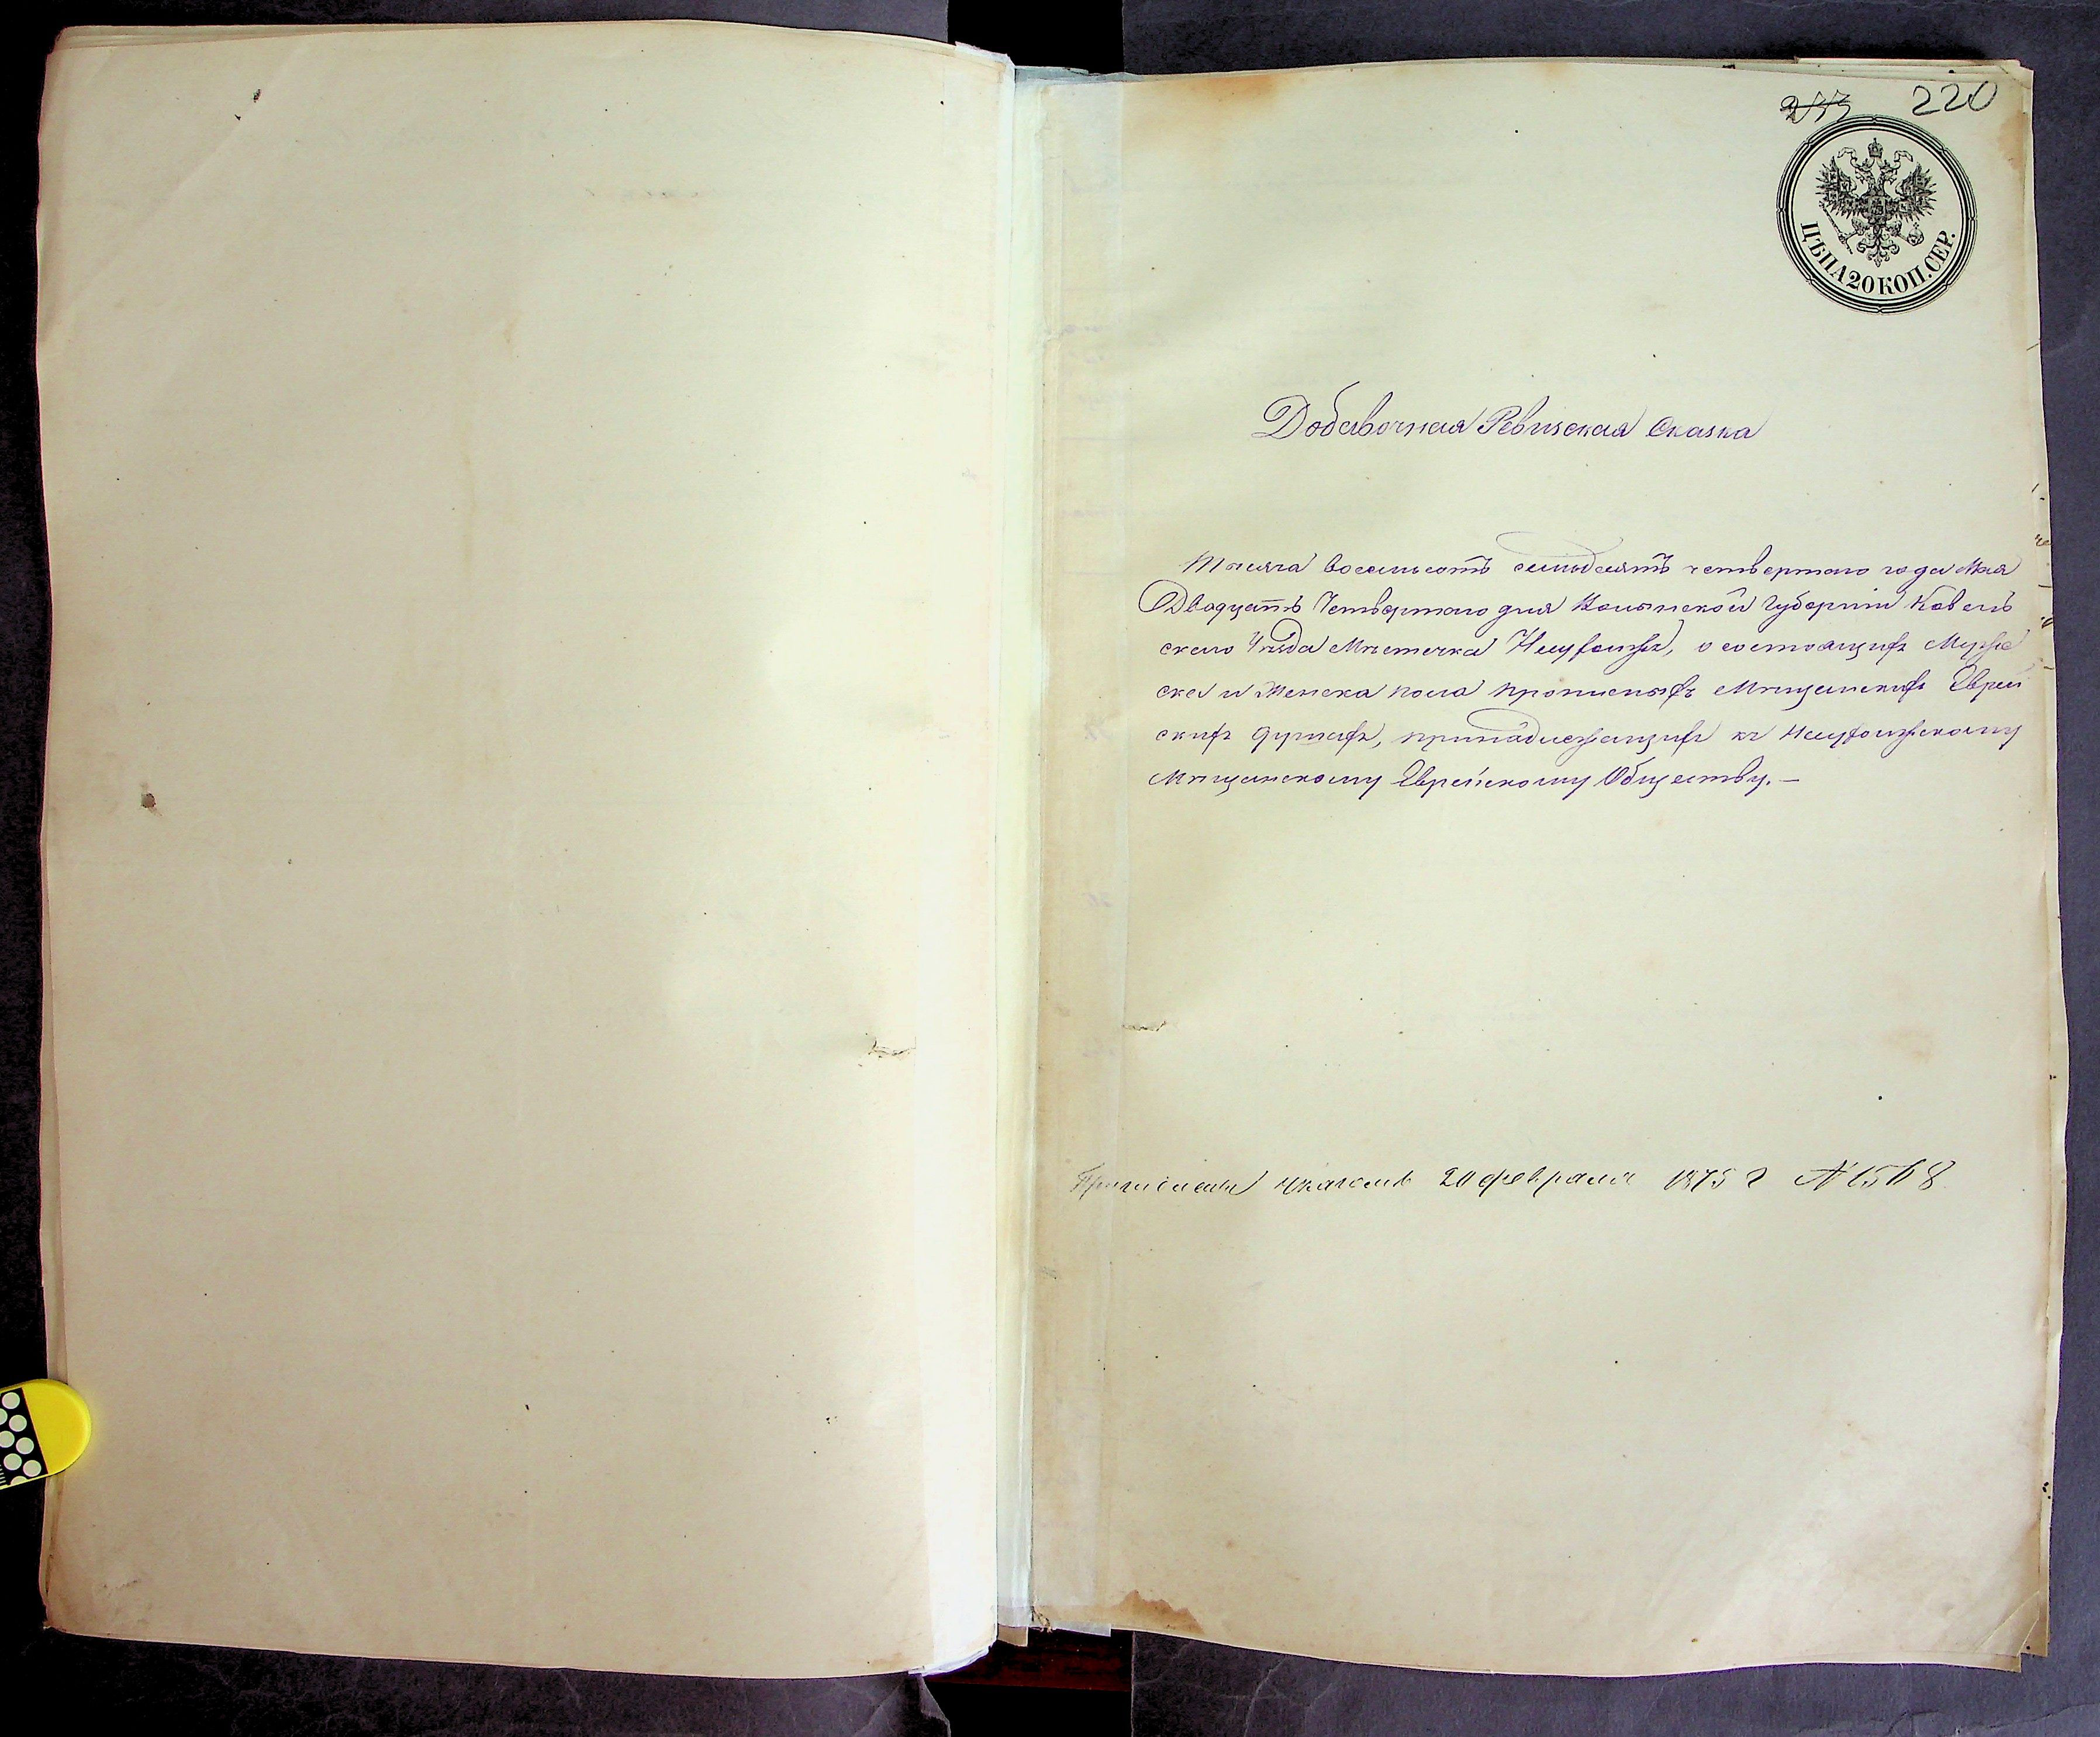 243 220
ЦѢНА 20 КОП. СЕР.
Добавочная Ревизская Сказка
Тысяча восемьсотъ семьдесятъ четвертаго года Мая
Двадцать Четвертаго дня Волынской Губерніи Ковель
скаго Уѣзда Мѣстечка Несухоижъ, о состоящихъ Муже
ска и Женска пола прописныхъ Мѣщанскихъ Еврей
скихъ душахъ, принадлежащихъ къ Несухоижскому
Мѣщанскому Еврейскому Обществу. —
указомъ 20 февраля 1875 г №